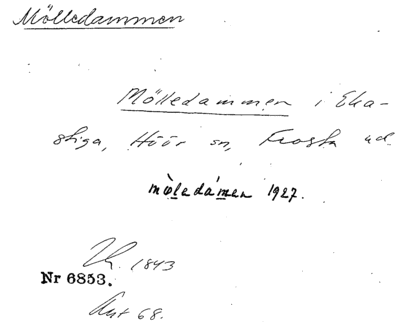 Mölledammen
Mölledammen i Eka-
stiga, Höör sn, Frosta hd.
mòledámen 1927.
1843
Nr 6853.
Ant 68.